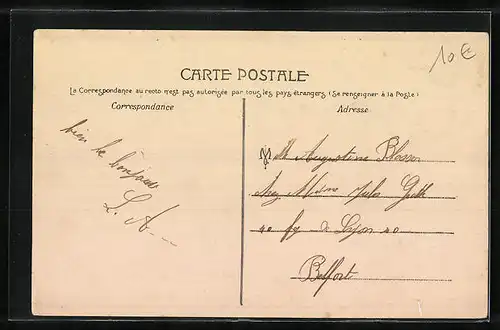 10€
CARTE POSTALE
La Correspondance au recto n'est pas autorisée par tous les pays étrangers (Se renseigner à la Poste)
Correspondance
Adresse
bien le bonjour
L. A
Mlle Augustine Blosser
chez Mme Jules
40 fg de Lyon 40
Belfort